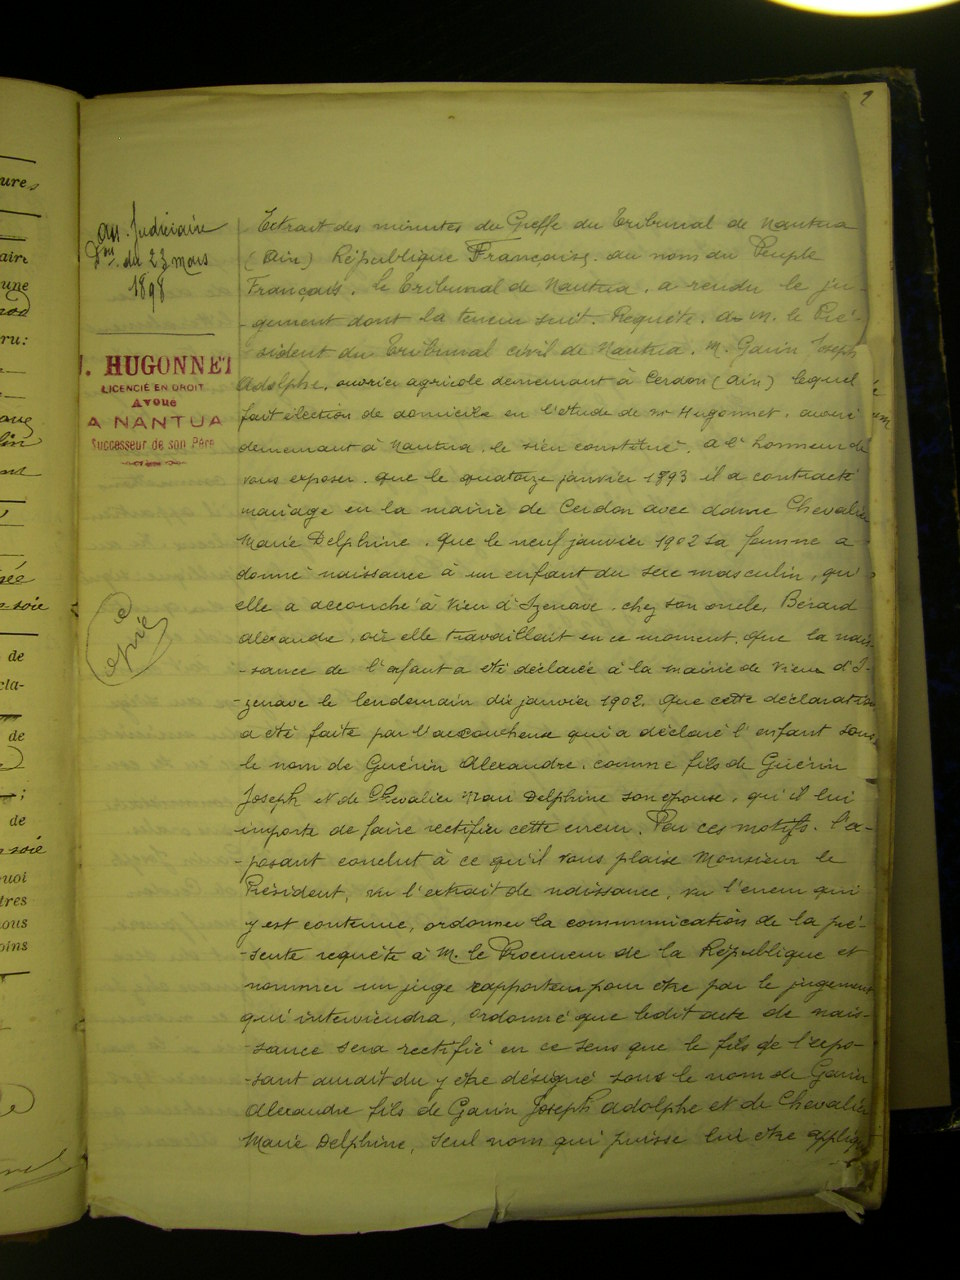 2
ass. Judiciaire
Don du 23 mars
1898
J. HUGONNET
LICENCIÉ EN DROIT
AVOUÉ
A NANTUA
Successeur de son Père
Copié
Extrait des minutes du Greffe du Tribunal de Nantua
(Ain) République Française. au nom du Peuple
Français. le Tribunal de Nantua. a rendu le ju-
-gement dont la teneur suit. Requête. de M. le Pré-
-sident du Tribunal civil de Nantua. M. Garin Joseph
Adolphe, ouvrier agricole demeurant à Cerdon (Ain) lequel
fait élection de domicile en l'étude de me Hugonnet, avoué
demeurant à Nantua. le sien constitué, a l'honneur de
vous exposer. que le quatorze janvier 1893 il a contracté
mariage en la mairie de Cerdon avec dame Chevalier
Marie Delphine. Que le neuf janvier 1902 sa femme a
donné naissance à un enfant du sexe masculin, qu'
elle a accouché à Vieu d'Izenave. chez son oncle, Bérard
Alexandre, où elle travaillait en ce moment. que la nais-
-sance de l'enfant a été déclarée à la mairie de Vieux d'I-
-zenave le lendemain dix janvier 1902. Que cette déclaration
a été faite par l'accoucheuse qui a déclaré l'enfant sous
le nom de Guérin Alexandre. comme fils de Guérin
Joseph et de Chevalier Marie Delphine son épouse, qu'il lui
importe de faire rectifier cette erreur. Pour ces motifs. l'ex-
-posant conclut à ce qu'il vous plaise Monsieur le
Président, vu l'extrait de naissance, vu l'erreur qui
y est contenue, ordonner la communication de la pré-
-sente requête à M. le Procureur de la République et
nommer un juge rapporteur pour être par le jugement
qui interviendra, ordonné que ledit acte de nais-
-sance sera rectifié en ce sens que le fils de l'expo-
-sant aurait du y être désigné sous le nom de Garin
Alexandre fils de Garin Joseph Adolphe et de Chevalier
Marie Delphine, seul nom qui puisse lui être appliqué